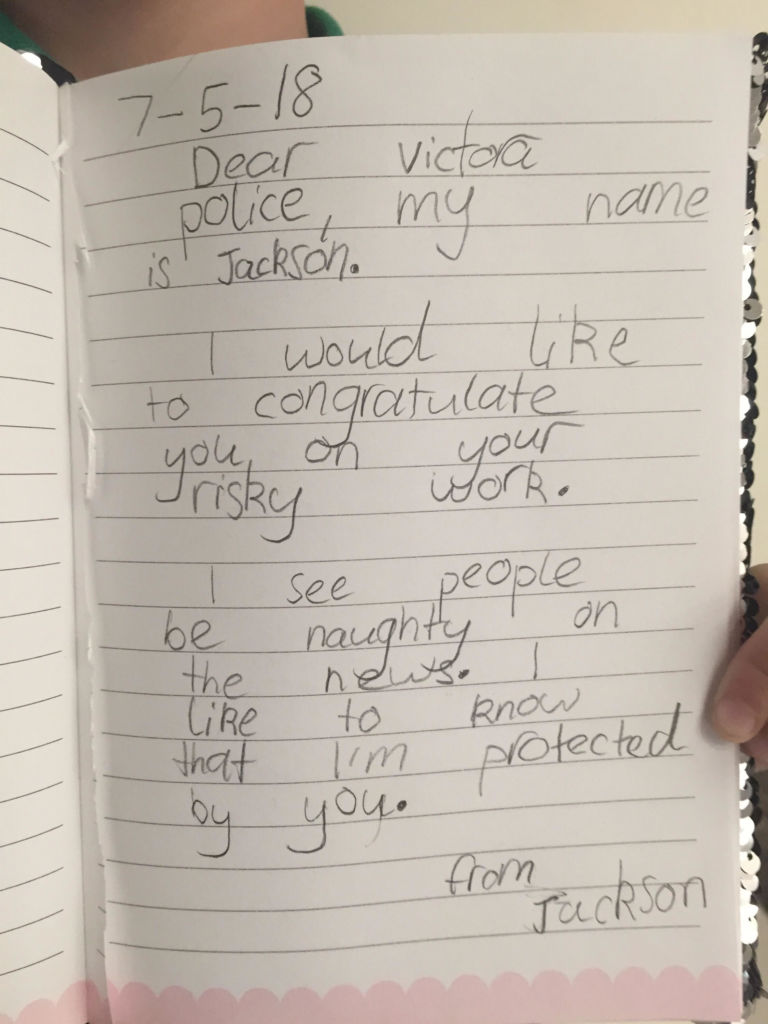 7-5-18
Dear Victora
police, my name
is Jackson.
I would like
to congratulate
you, on your
risky work.
I see people
be naughty on
the news. I
like to know
that I'm protected
by you.
from
Jackson